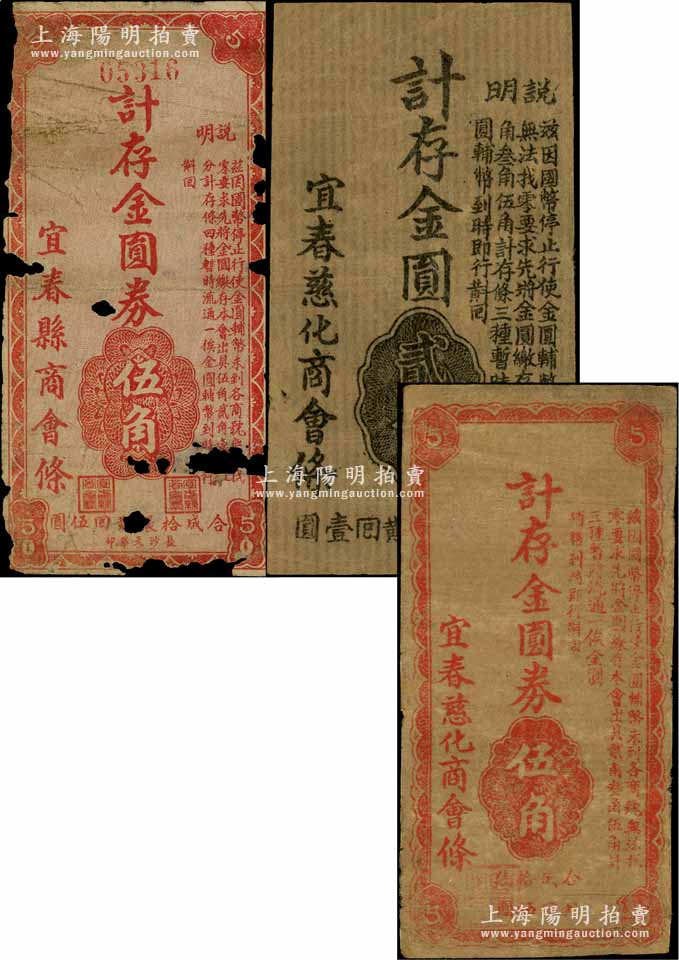 上海陽明拍賣
www.yangmingauction.com
5
05316
計存金圓券
伍角
說明
茲因國幣停止行使金圓輔幣未到各商號無
零要求先將金圓繳存本會出具伍角貳角
分計存條四種暫時流通一俟金圓輔幣到
解回
宜春縣商會條
合成拾
回伍圓
長沙
印
5
5
計存金圓
貳
說明
茲因國幣停止行使金圓輔幣
無法找零要求先將金圓繳存
角叁角伍角計存條三種暫時
圓輔幣到時即行
回
宜春慈化商會條
回壹圓
上海陽明拍賣
www.yangmingauction.com
5
5
計存金圓券
伍角
茲因國幣停止行使金圓輔幣未到各商號無法找
零要求先將金圓繳存本會出具貳角叁角伍角計
三種暫時流通一俟金圓
輔幣到時即行
宜春慈化商會條
合成拾
5
上海陽明拍賣
www.yangmingauction.com